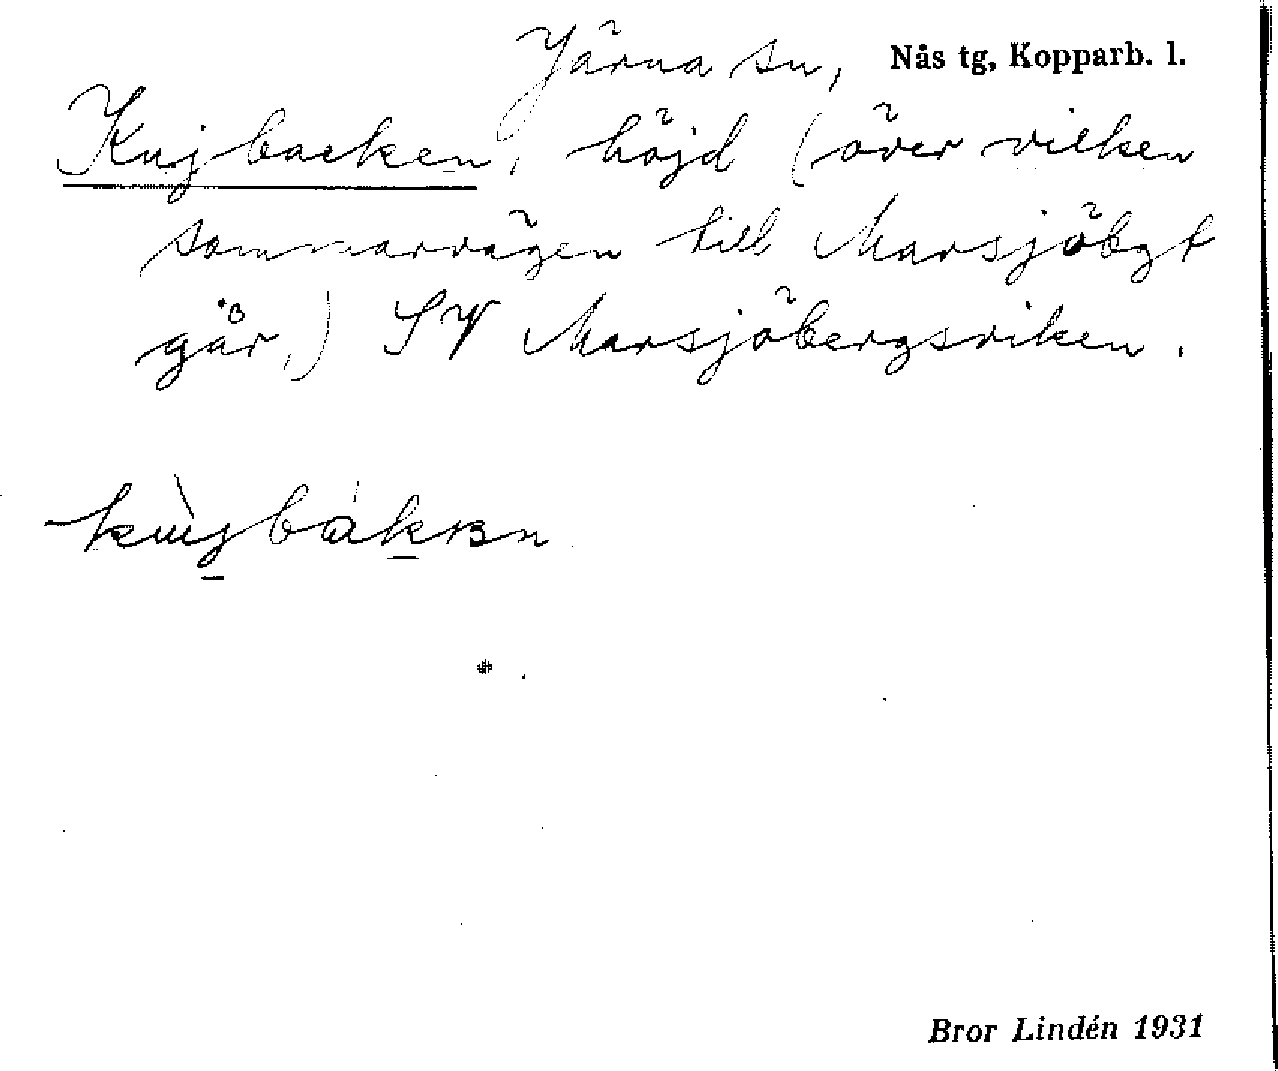 Järna sn, Nås tg, Kopparb. l.
Kujbacken, höjd (över vilken
sommarvägen till Marsjöbgt
går,) SV Marsjöbergsviken.
kùjbákkɐn
Bror Lindén 1931